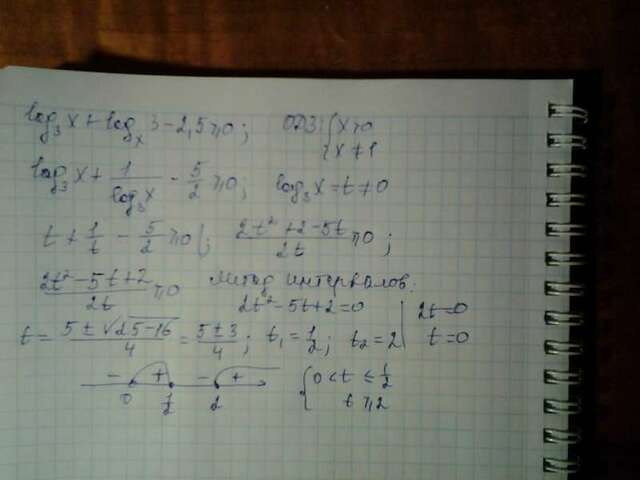 log₃x + logₓ3 - 2,5 ≥ 0; ОДЗ: { x > 0
x ≠ 1
log₃x + 1/log₃x - 5/2 ≥ 0; log₃x = t ≠ 0
t + 1/t - 5/2 ≥ 0; (2t² + 2 - 5t)/2t ≥ 0;
(2t² - 5t + 2)/2t ≥ 0 Метод интервалов:
2t² - 5t + 2 = 0 | 2t = 0
t = (5 ± √25 - 16)/4 = (5 ± 3)/4; t₁ = 1/2; t₂ = 2 | t = 0
- + - +
0 1/2 2
{ 0 < t ≤ 1/2
t ≥ 2